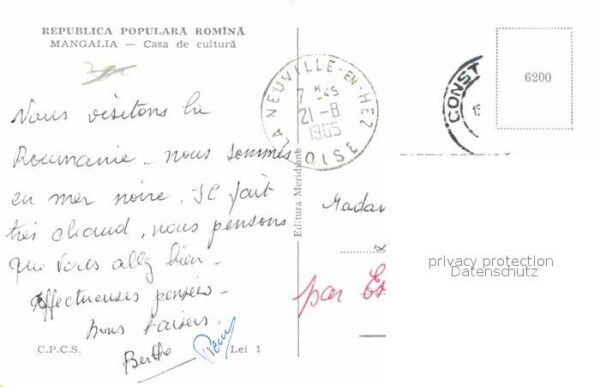 REPUBLICA POPULARĂ ROMÎNĂ
MANGALIA — Casa de cultură
Nous visitons la
Roumanie - nous sommes
en mer noire. Il fait
très chaud, nous pensons
que vous allez bien -
Affectueuses pensées -
bons baisers.
Berthe
Rémy
C.P.C.S.
Lei 1
Editura Meridiane
LA NEUVILLE-EN-HEZ
7 H 45
21-8
1965
OISE
CONST
6200
Madam
par Es
privacy protection
Datenschutz